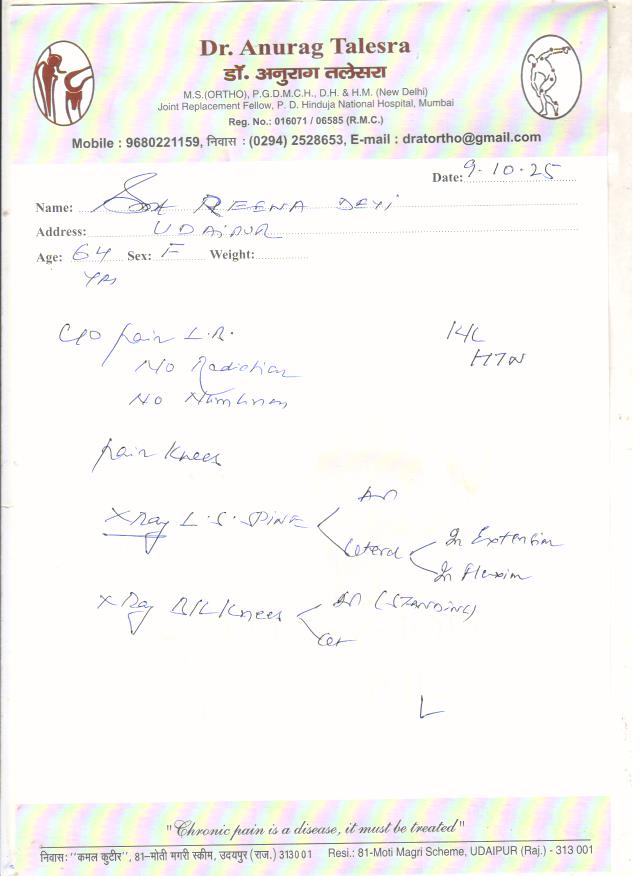 Dr. Anurag Talesra
डॉ. अनुराग तलेसरा
M.S.(ORTHO), P.G.D.M.C.H., D.H. & H.M. (New Delhi)
Joint Replacement Fellow, P. D. Hinduja National Hospital, Mumbai
Reg. No.: 016071 / 06585 (R.M.C.)
Mobile : 9680221159, निवास : (0294) 2528653, E-mail : dratortho@gmail.com
Date: 9.10.25
Name: Smt REENA DEVI
Address: UDAIPUR
Age: 64 Sex: F Weight:
Yrs
C/O pain L.B.
No Radiation
No Numbness
HTN
pain Knees
X Ray L.S. SPINE
AP
Lateral
In Extension
In Flexion
X Ray B/L Knees
AP (STANDING)
Lat
"Chronic pain is a disease, it must be treated"
निवास: "कमल कुटीर", 81-मोती मगरी स्कीम, उदयपुर (राज.) 313001 Resi.: 81-Moti Magri Scheme, UDAIPUR (Raj.) - 313 001